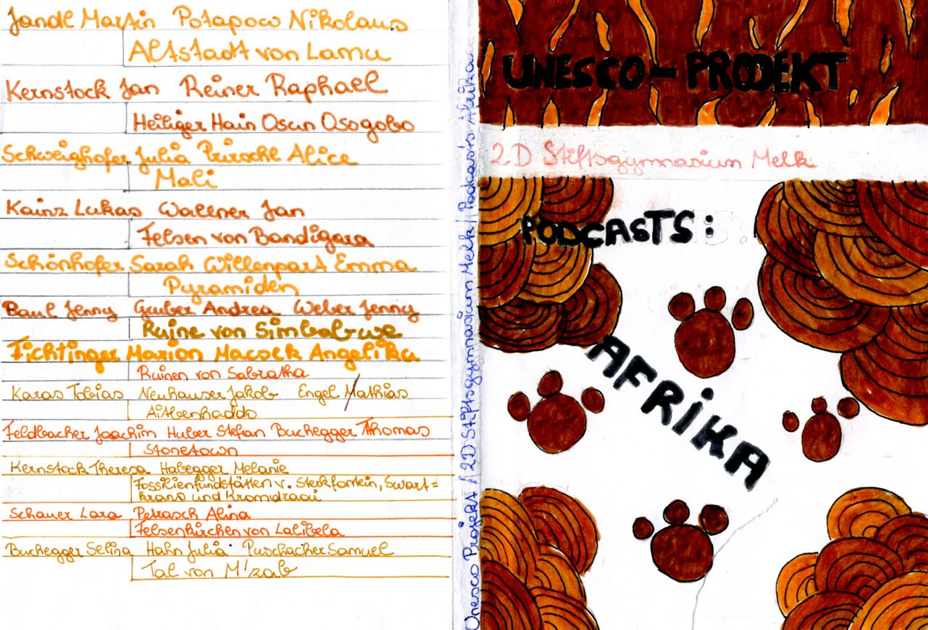 Jandl Martin Potapow Nikolaus
Altstadt von Lamu
Kernstock Jan Reiner Raphael
Heiliger Hain Osun Osogobo
Schweighofer Julia Prirschl Alice
Mali
Kainz Lukas Wallner Jan
Felsen von Bandigara
Schönhofer Sarah Willenpart Emma
Pyramiden
Baul Jenny Gruber Andrea Weber Jenny
Ruine von Simbabwe
Fichtinger Marion Macsek Angelika
Ruinen von Sabratha
Karas Tobias Neuhauser Jakob Engel Mathias
Aitbenhaddo
Feldbacher Joachim Huber Stefan Buchegger Thomas
Stonetown
Kernstock Theresa Habegger Melanie
Fossilienfundstätten v. Sterkfontein, Swart=
krans und Kromdraai
Schauer Lara Petrasch Alina
Felsenkirchen von Lalibela
Buchegger Selina Hahn Julia Purschacher Samuel
Tal von M'zab
Unesco Projekt / 2D Stiftsgymnasium Melk / Podcasts Afrika
UNESCO-PROJEKT
2D Stiftsgymnasium Melk
PODCASTS:
AFRIKA